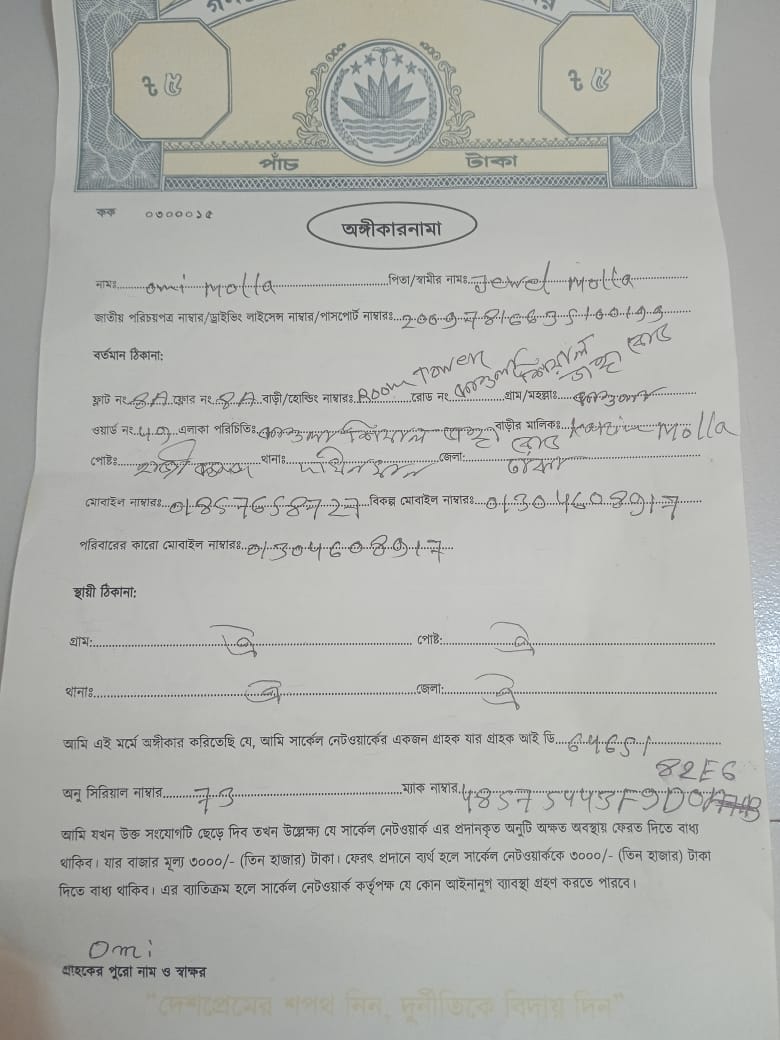 ৳ ৫ ৳ ৫
পাঁচ টাকা
কক ০৩০০০১৫
অঙ্গীকারনামা
নামঃ omi Molla পিতা/স্বামীর নামঃ Jewel Molla
জাতীয় পরিচয়পত্র নাম্বার/ড্রাইভিং লাইসেন্স নাম্বার/পাসপোর্ট নাম্বারঃ
বর্তমান ঠিকানা:
ফ্লাট নং 8A ফ্লোর নং 8A বাড়ী/হোল্ডিং নাম্বারঃ Room Tower রোড নং গ্রাম/মহল্লাঃ
ওয়ার্ড নং 49 এলাকা পরিচিতিঃ বাড়ীর মালিকঃ Molla
পোষ্টঃ থানাঃ জেলা: ঢাকা
মোবাইল নাম্বারঃ 01857658727 বিকল্প মোবাইল নাম্বারঃ 01304608917
পরিবারের কারো মোবাইল নাম্বারঃ 01304608917
স্থায়ী ঠিকানা:
গ্রাম: ঐ পোষ্ট: ঐ
থানাঃ ঐ জেলা: ঐ
আমি এই মর্মে অঙ্গীকার করিতেছি যে, আমি সার্কেল নেটওয়ার্কের একজন গ্রাহক যার গ্রাহক আই ডি 64651
82E6
অনু সিরিয়াল নাম্বার 73 ম্যাক নাম্বার 48575443F9D0
আমি যখন উক্ত সংযোগটি ছেড়ে দিব তখন উল্লেক্ষ্য যে সার্কেল নেটওয়ার্ক এর প্রদানকৃত অনুটি অক্ষত অবস্থায় ফেরত দিতে বাধ্য
থাকিব। যার বাজার মূল্য ৩০০০/- (তিন হাজার) টাকা। ফেরৎ প্রদানে ব্যর্থ হলে সার্কেল নেটওয়ার্ককে ৩০০০/- (তিন হাজার) টাকা
দিতে বাধ্য থাকিব। এর ব্যতিক্রম হলে সার্কেল নেটওয়ার্ক কর্তৃপক্ষ যে কোন আইনানুগ ব্যবস্থা গ্রহণ করতে পারবে।
Omi
গ্রাহকের পুরো নাম ও স্বাক্ষর
"দেশপ্রেমের শপথ নিন, দুর্নীতিকে বিদায় দিন"